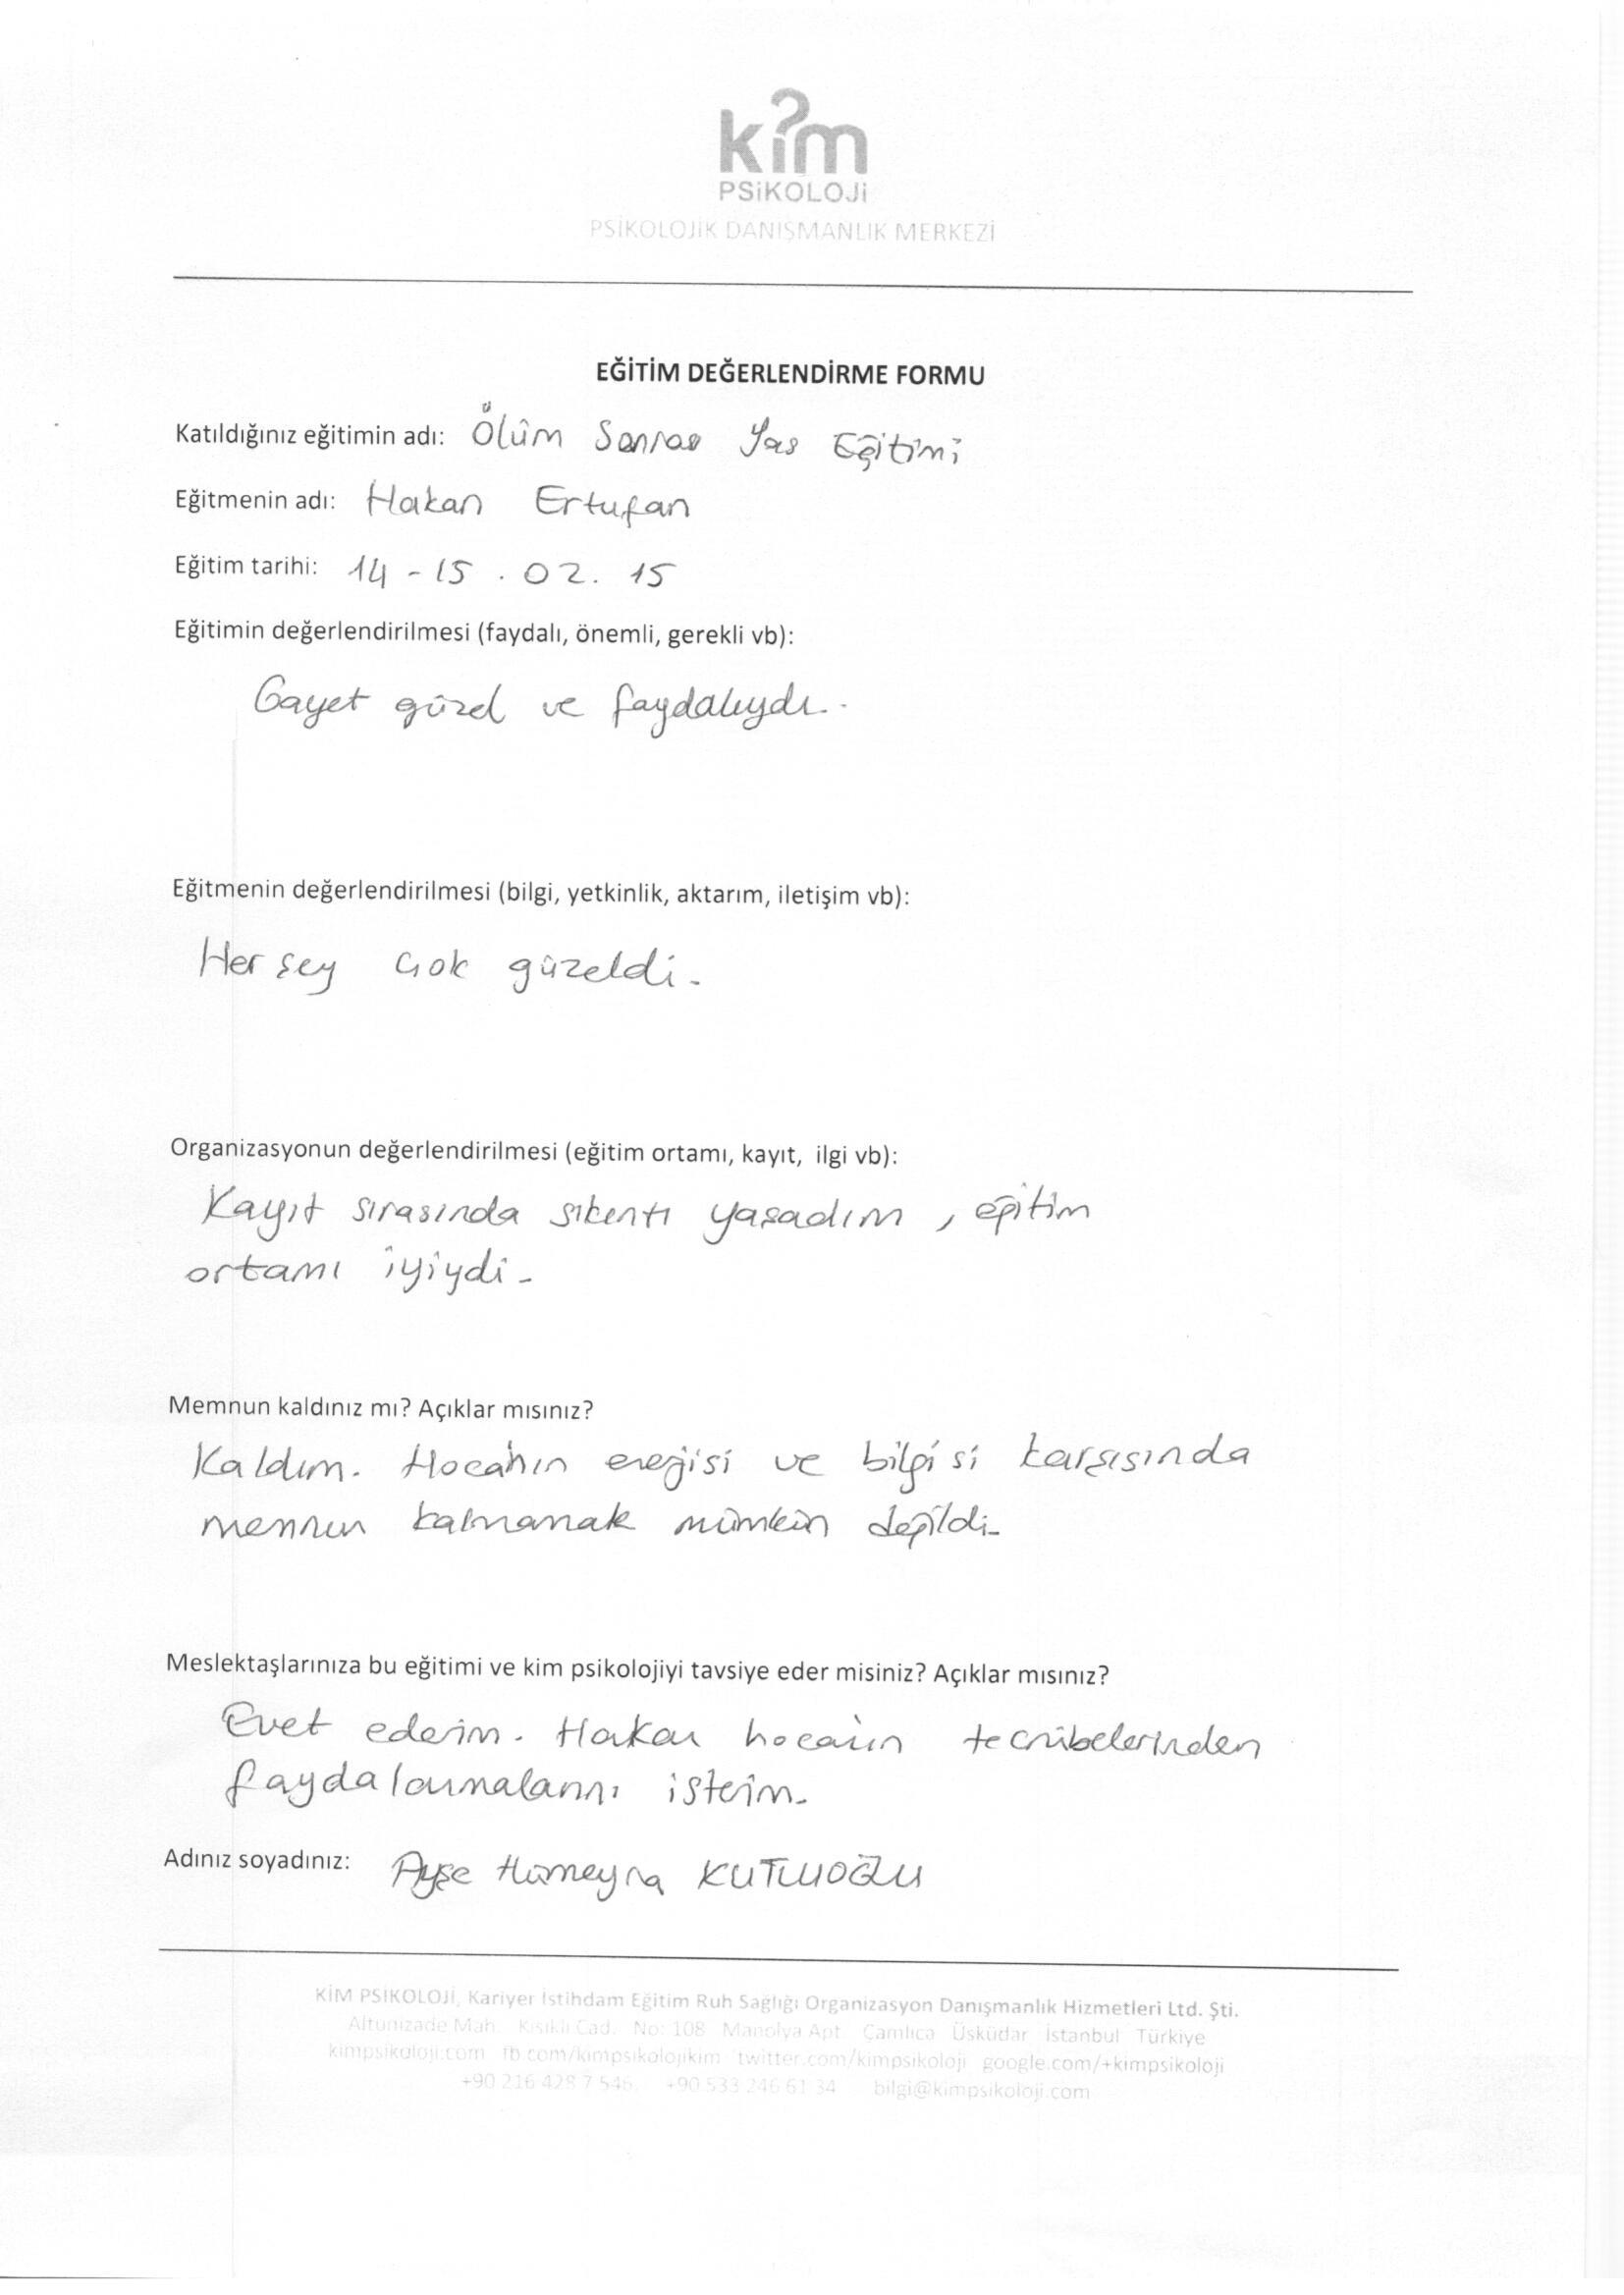 kim
PSİKOLOJİ
PSİKOLOJİK DANIŞMANLIK MERKEZİ
EĞİTİM DEĞERLENDİRME FORMU
Katıldığınız eğitimin adı: Ölüm Sonrası Yas Eğitimi
Eğitmenin adı: Hakan Ertufan
Eğitim tarihi: 14-15.02.15
Eğitimin değerlendirilmesi (faydalı, önemli, gerekli vb):
Gayet güzel ve faydalıydı..
Eğitmenin değerlendirilmesi (bilgi, yetkinlik, aktarım, iletişim vb):
Her şey çok güzeldi.
Organizasyonun değerlendirilmesi (eğitim ortamı, kayıt, ilgi vb):
Kayıt sırasında sıkıntı yaşadım, eğitim
ortamı iyiydi.
Memnun kaldınız mı? Açıklar mısınız?
Kaldım. Hoca'nın enerjisi ve bilgisi karşısında
memnun kalmamak mümkün değildi.
Meslektaşlarınıza bu eğitimi ve kim psikolojiyi tavsiye eder misiniz? Açıklar mısınız?
Evet ederim. Hakan hocanın tecrübelerinden
faydalanmalarını isterim.
Adınız soyadınız: Ayşe Hümeyra KUTLUOĞLU
KİM PSİKOLOJİ, Kariyer İstihdam Eğitim Ruh Sağlığı Organizasyon Danışmanlık Hizmetleri Ltd. Şti.
Altunizade Mah Kısıklı Cad. No: 108 Manolya Apt Çamlıca Üsküdar İstanbul Türkiye
kimpsikoloji.com fb.com/kimpsikolojikim twitter.com/kimpsikoloji google.com/+kimpsikoloji
+90 216 428 7 546 +90 533 246 61 34 bilgi@kimpsikoloji.com